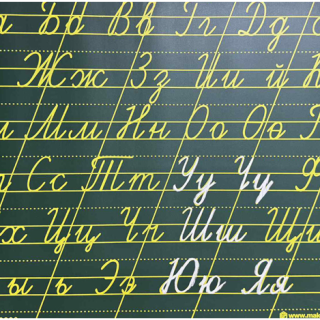 а Бб Вв Гг Дд
Жж Зз Ии й
Мм Нн Оо Өө
у Сс Тт Уу Үү Ф
х Цц Чч Шш Щщ
ы ь Ээ Юю Яя